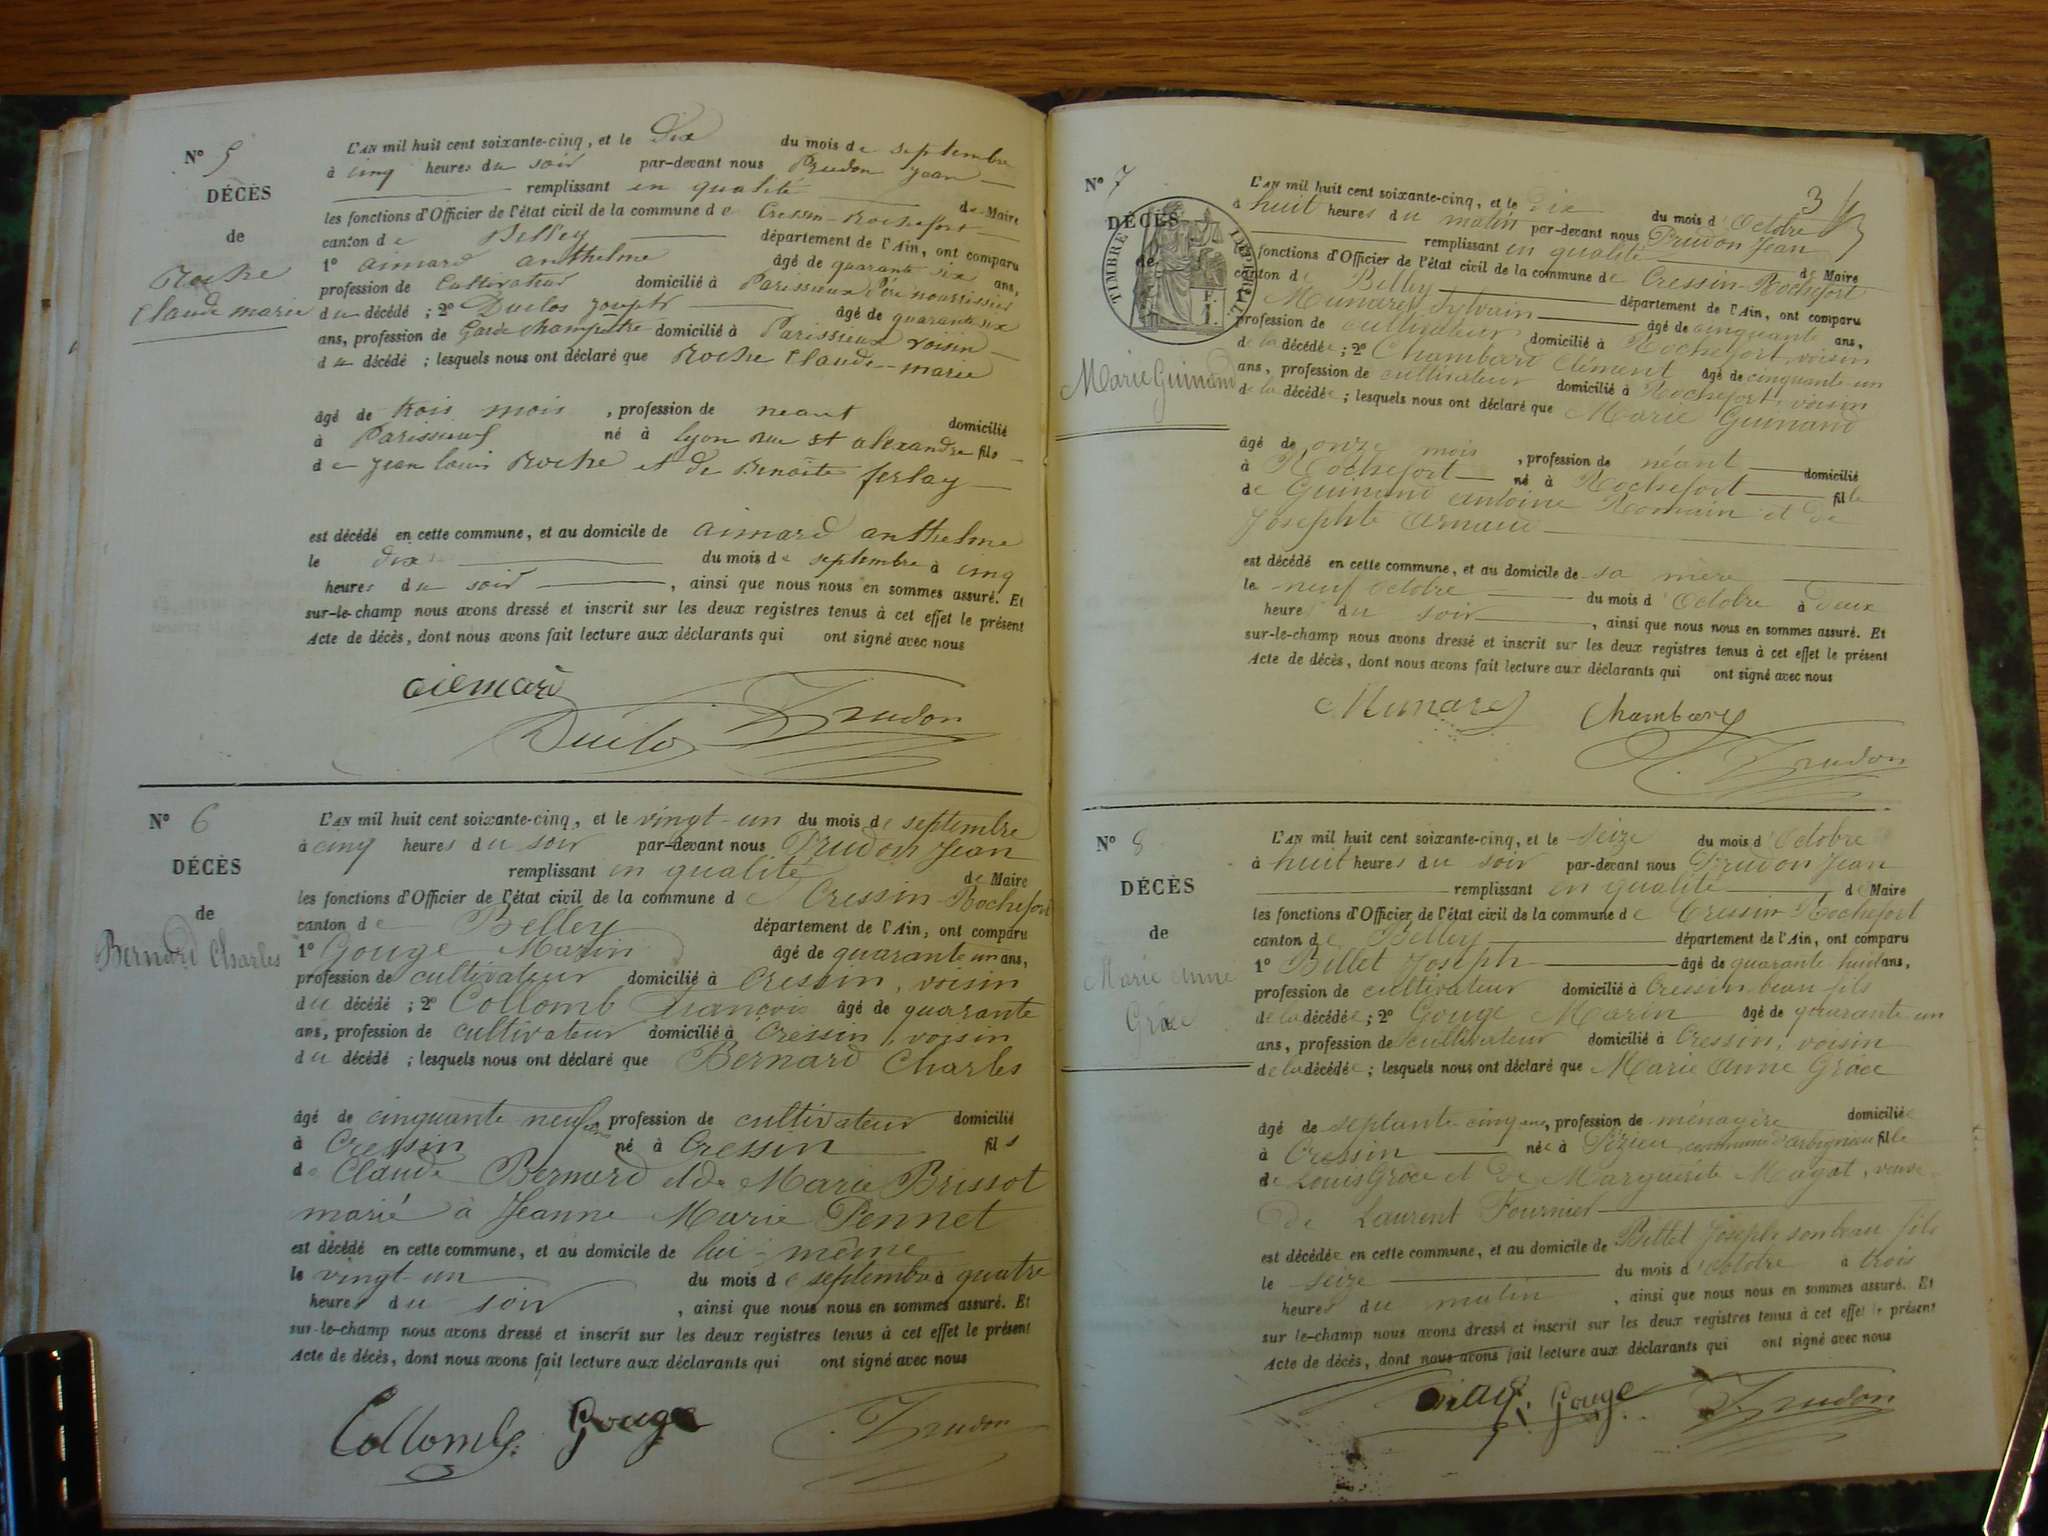 N° 5
DÉCÈS
de
Roche
Claude marie
L'AN mil huit cent soixante-cinq, et le Dix du mois de septembre
à cinq heures du soir par-devant nous Prudon Jean
remplissant en qualité de Maire
les fonctions d'Officier de l'état civil de la commune de Cressin-Rochefort
canton de Belley département de l'Ain, ont comparu
1° aimard anthelme âgé de quarante six ans,
profession de Cultivateur domicilié à Parissieux Père nourrissier
du décédé ; 2° Duclos joseph âgé de quarante six
ans, profession de Garde champêtre domicilié à Parissieux voisin
du décédé ; lesquels nous ont déclaré que Roche Claude-marie
âgé de trois mois, profession de neant domicilié
à Parissieux né à lyon rue st alexandre fils
de jean louis Roche et de Benoîte ferlay
est décédé en cette commune, et au domicile de aimard anthelme
le dix du mois de septembre à cinq
heures du soir, ainsi que nous nous en sommes assuré. Et
sur-le-champ nous avons dressé et inscrit sur les deux registres tenus à cet effet le présent
Acte de décès, dont nous avons fait lecture aux déclarants qui ont signé avec nous
Prudon
N° 6
DÉCÈS
de
Bernard Charles
L'AN mil huit cent soixante-cinq, et le vingt-un du mois de septembre
à cinq heures du soir par-devant nous Prudon Jean
remplissant en qualité de Maire
les fonctions d'Officier de l'état civil de la commune de Cressin-Rochefort
canton de Belley département de l'Ain, ont comparu
1° Gouge Marin âgé de quarante un ans,
profession de cultivateur domicilié à Cressin, voisin
du décédé ; 2° Collomb François âgé de quarante
ans, profession de cultivateur domicilié à Cressin, voisin
du décédé ; lesquels nous ont déclaré que Bernard Charles
âgé de cinquante neuf ans profession de cultivateur domicilié
à Cressin né à Cressin fils
de Claude Bernard et de Marie Brissot
marié à Jeanne Marie Pennet
est décédé en cette commune, et au domicile de lui-même
le vingt-un du mois de septembre à quatre
heures du soir, ainsi que nous nous en sommes assuré. Et
sur-le-champ nous avons dressé et inscrit sur les deux registres tenus à cet effet le présent
Acte de décès, dont nous avons fait lecture aux déclarants qui ont signé avec nous
Collomb Gouge Prudon
3
N° 7
DÉCÈS
de
TIMBRE IMPÉRIAL
F.
1.
Marie Guinand
L'AN mil huit cent soixante-cinq, et le dix du mois d'Octobre
à huit heures du matin par-devant nous Prudon Jean
remplissant en qualité de Maire
les fonctions d'Officier de l'état civil de la commune de Cressin-Rochefort
canton de Belley département de l'Ain, ont comparu
Munaret Sylvain âgé de cinquante ans,
profession de cultivateur domicilié à Rochefort, voisin
de la décédée ; 2° Chambard Clément âgé de cinquante-un
ans, profession de cultivateur domicilié à Rochefort, voisin
de la décédée ; lesquels nous ont déclaré que Marie Guinand
âgé de onze mois, profession de néant domicilié
à Rochefort né à Rochefort fille
de Guinand Antoine Romain et de
Josephte Arnaud
est décédé en cette commune, et au domicile de sa mère
le neuf Octobre du mois d'Octobre à deux
heures du soir, ainsi que nous nous en sommes assuré. Et
sur-le-champ nous avons dressé et inscrit sur les deux registres tenus à cet effet le présent
Acte de décès, dont nous avons fait lecture aux déclarants qui ont signé avec nous
Munaret Chambard
Prudon
N° 8
DÉCÈS
de
Marie Anne
Grâce
L'AN mil huit cent soixante-cinq, et le seize du mois d'Octobre
à huit heures du soir par-devant nous Prudon Jean
remplissant en qualité de Maire
les fonctions d'Officier de l'état civil de la commune de Cressin-Rochefort
canton de Belley département de l'Ain, ont comparu
1° Billet Joseph âgé de quarante-huit ans,
profession de cultivateur domicilié à Cressin, beau fils
de la décédée ; 2° Gouge Marin âgé de quarante-un
ans, profession de cultivateur domicilié à Cressin, voisin
de la décédée ; lesquels nous ont déclaré que Marie Anne Grâce
âgé de septante cinq ans, profession de ménagère domiciliée
à Cressin née à Pézieu commune d'arbignieu fille
de Louis Grâce et de Marguerite Magat, veuve
de Laurent Fournier
est décédée en cette commune, et au domicile de Billet Joseph son beau fils
le seize du mois d'octobre à trois
heures du matin, ainsi que nous nous en sommes assuré. Et
sur le-champ nous avons dressé et inscrit sur les deux registres tenus à cet effet le présent
Acte de décès, dont nous avons fait lecture aux déclarants qui ont signé avec nous
Gouge Prudon